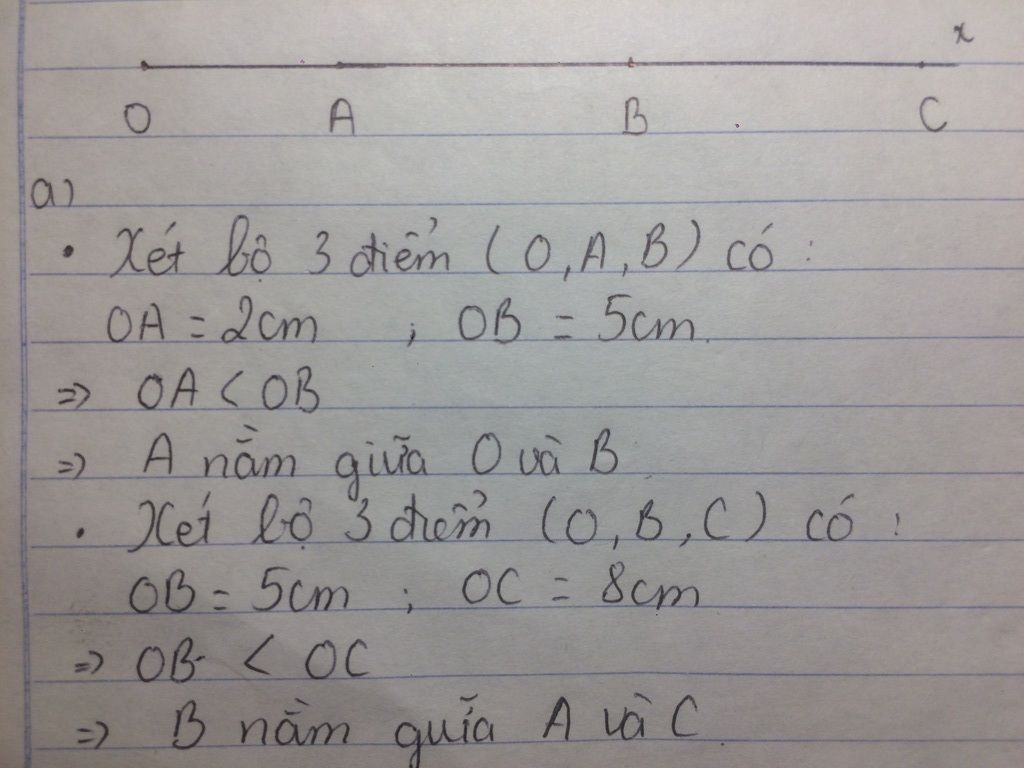 x
O A B C
a)
• Xét bộ 3 điểm (O, A, B) có :
OA = 2cm ; OB = 5cm.
=> OA < OB
=> A nằm giữa O và B
• Xét bộ 3 điểm (O, B, C) có :
OB = 5cm ; OC = 8cm
=> OB < OC
=> B nằm giữa A và C